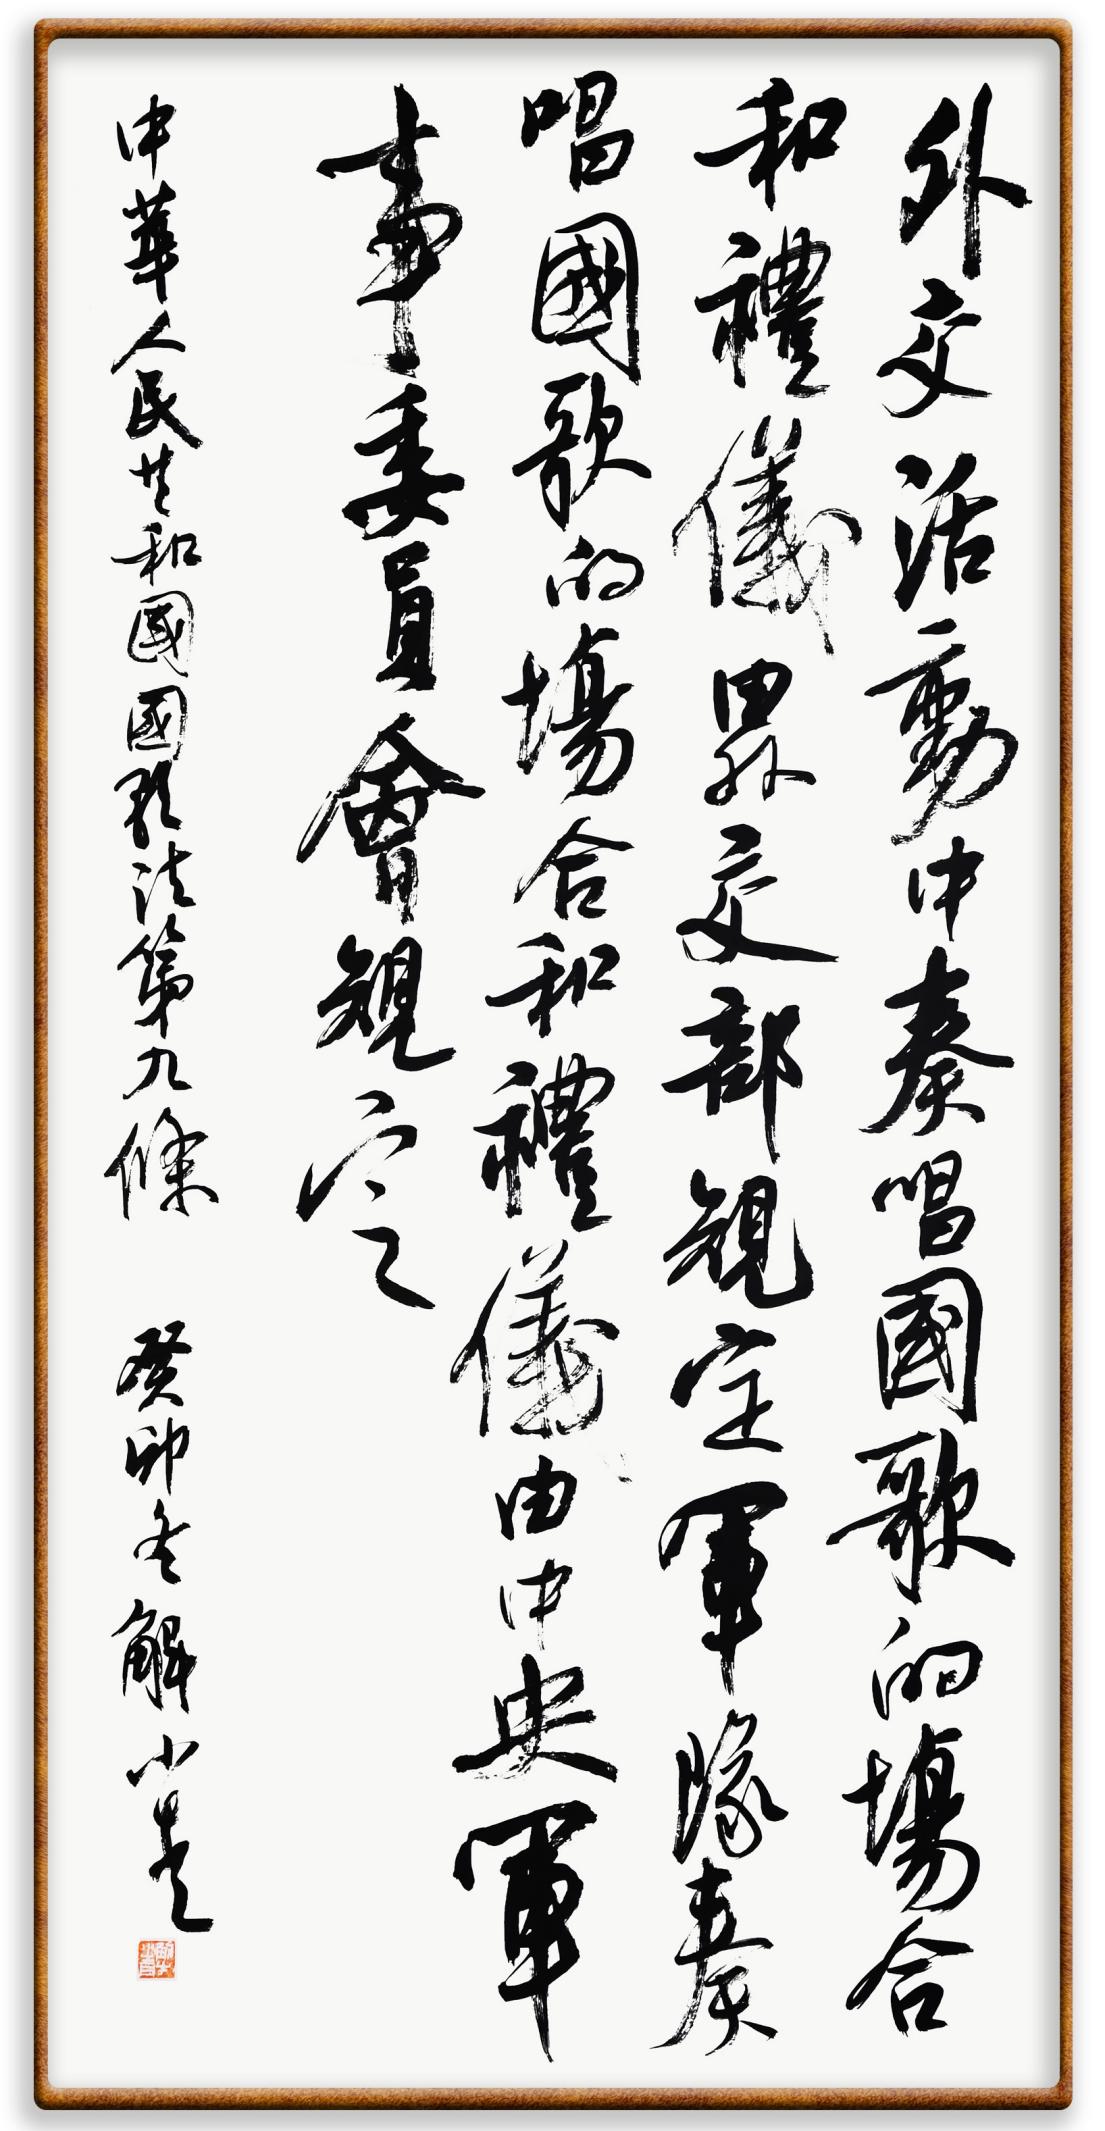 外交活動中奏唱國歌的場合
和禮儀由外交部規定軍隊奏
唱國歌的場合和禮儀由中央軍
事委員會規定
中華人民共和國國歌法第九條 癸卯冬解小青